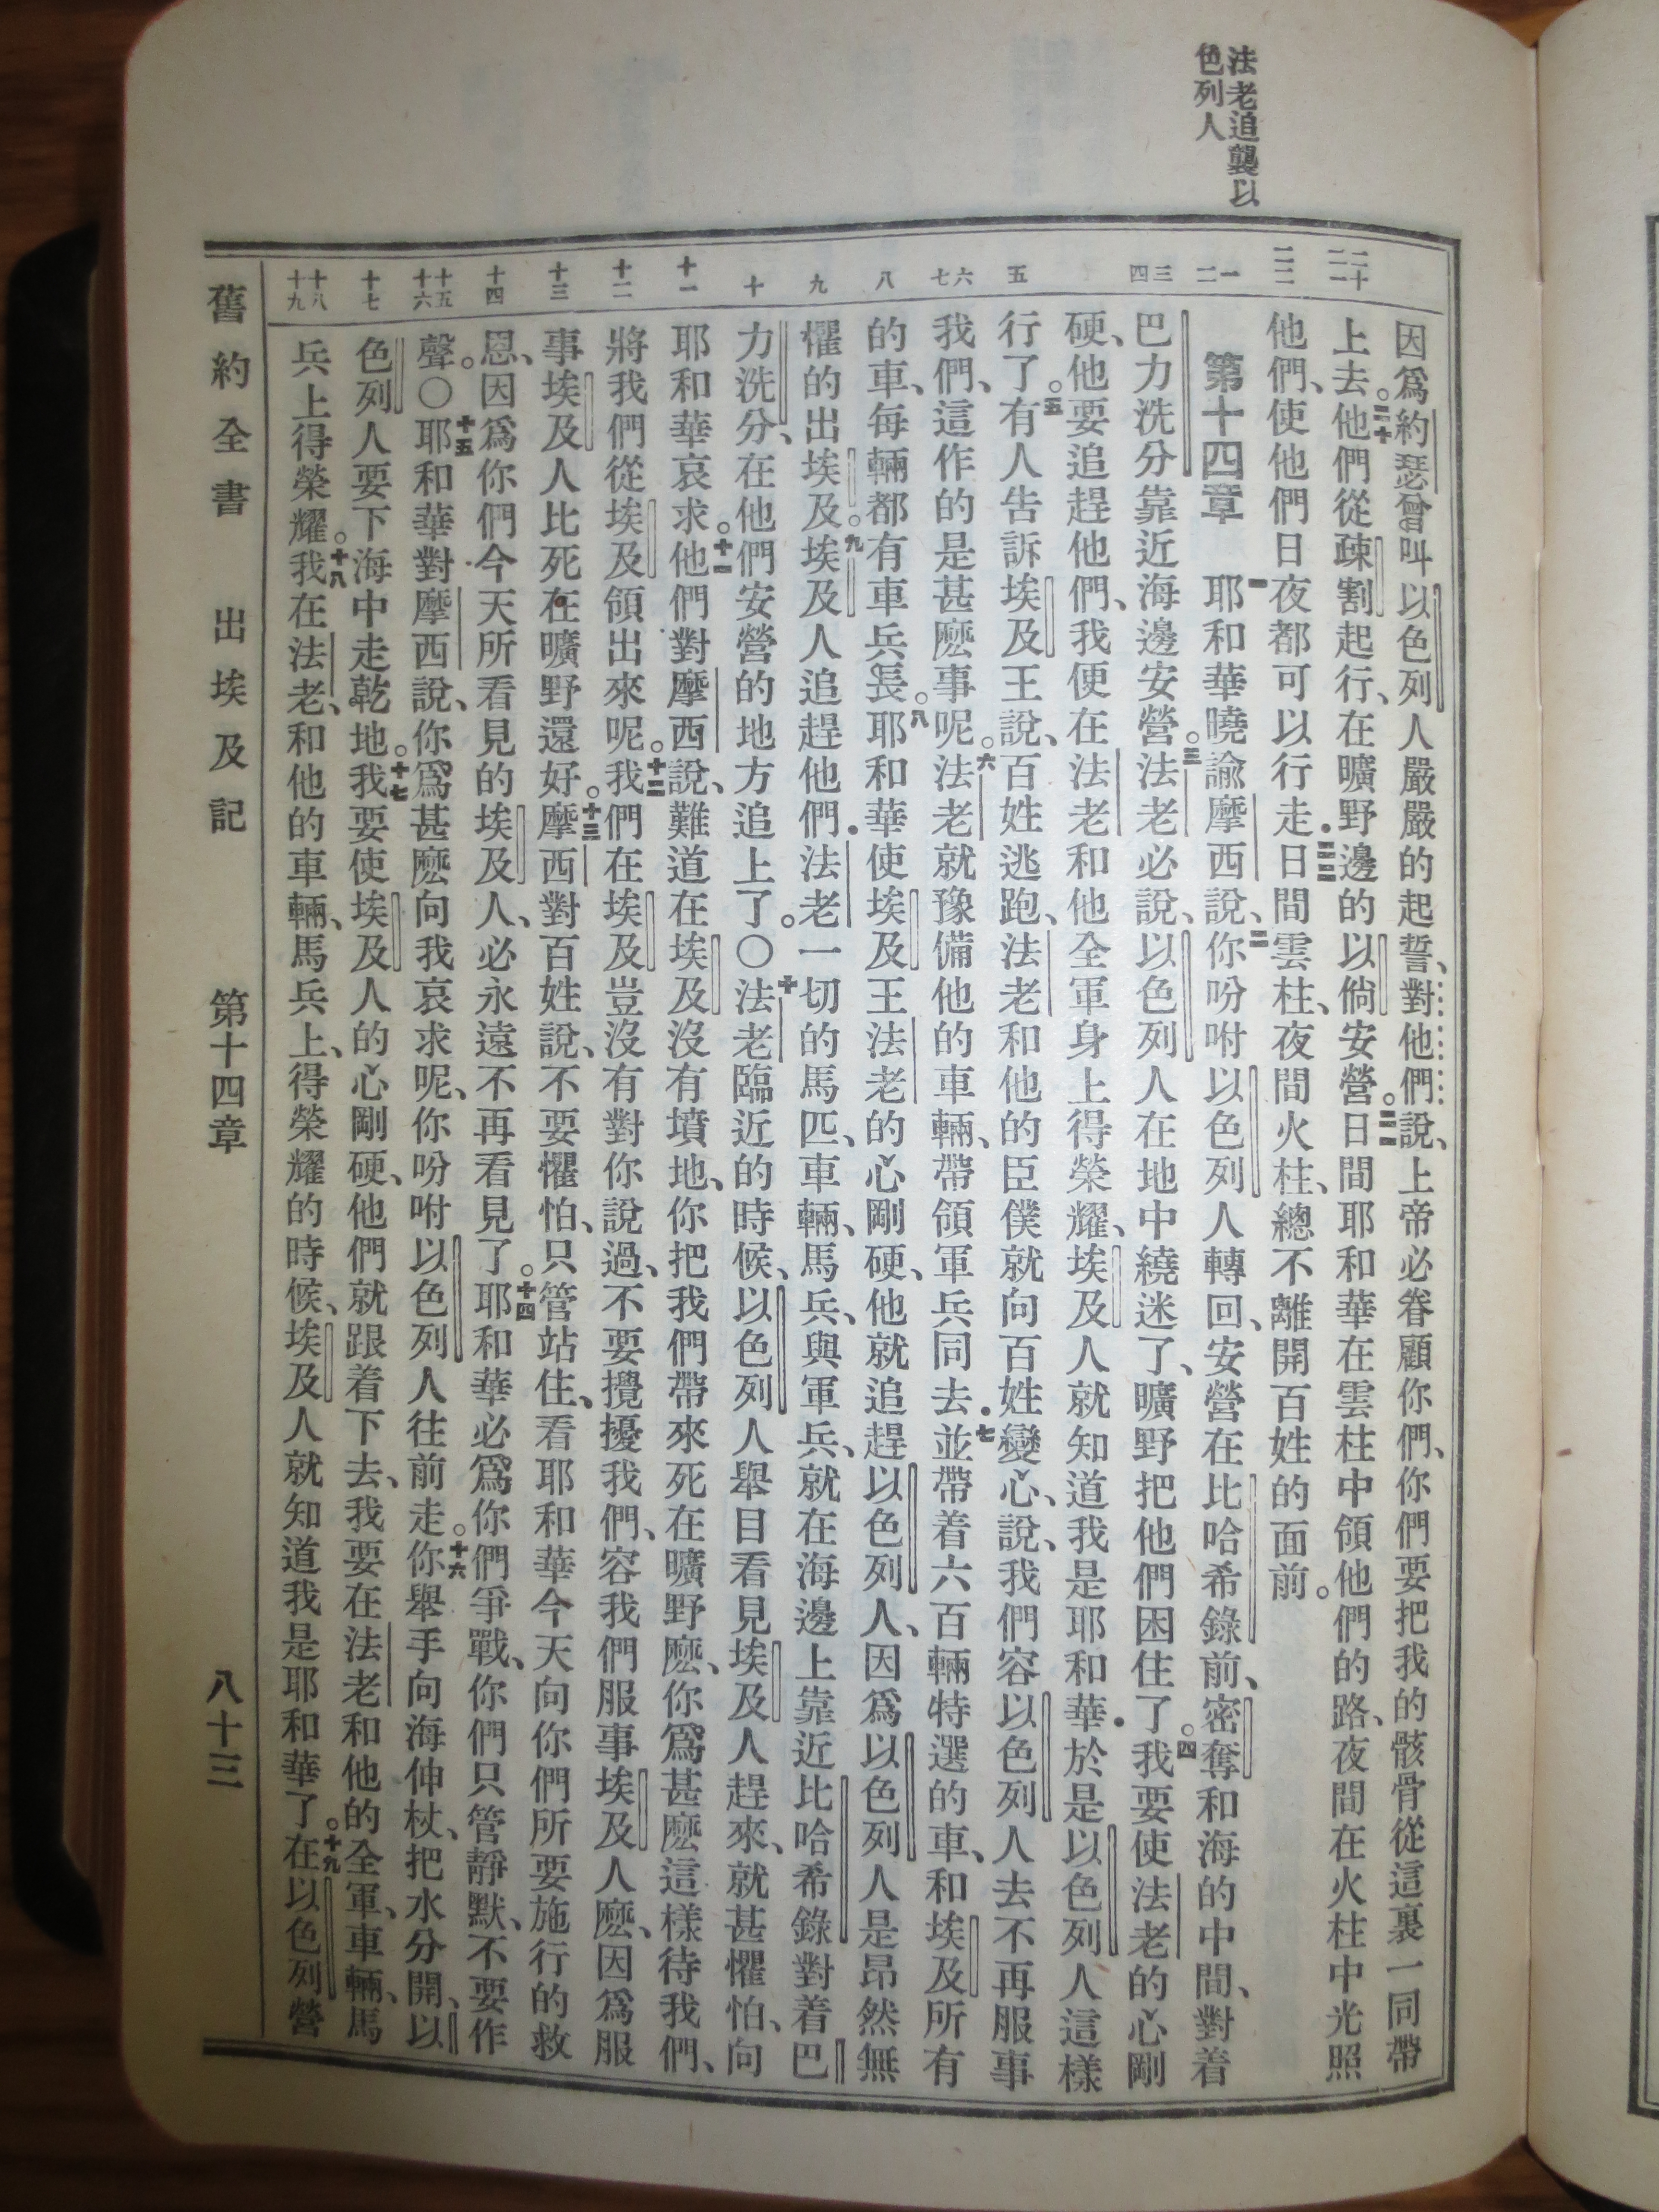 法老追襲以
色列人
二十 二一
二二
一 二
三 四
五
六 七
八
九
十
十一
十二
十三
十四
十五 十六
十七
十八 十九
因爲約瑟曾叫以色列人嚴嚴的起誓、對他們說、上帝必眷顧你們、你們要把我的骸骨從這裏一同帶
上去。二十他們從疎割起行、在曠野邊的以倘安營。二一日間耶和華在雲柱中領他們的路、夜間在火柱中光照
他們、使他們日夜都可以行走．二二日間雲柱、夜間火柱、總不離開百姓的面前。
第十四章 一耶和華曉諭摩西說、二你吩咐以色列人轉回、安營在比哈希錄前、密奪和海的中間、對着
巴力洗分靠近海邊安營。三法老必說、以色列人在地中繞迷了、曠野把他們困住了。四我要使法老的心剛
硬、他要追趕他們、我便在法老和他全軍身上得榮耀、埃及人就知道我是耶和華．於是以色列人這樣
行了。五有人告訴埃及王說、百姓逃跑、法老和他的臣僕就向百姓變心、說、我們容以色列人去不再服事
我們、這作的是甚麽事呢。六法老就豫備他的車輛、帶領軍兵同去．七並帶着六百輛特選的車、和埃及所有
的車、每輛都有車兵長。八耶和華使埃及王法老的心剛硬、他就追趕以色列人、因爲以色列人是昂然無
懼的出埃及。九埃及人追趕他們．法老一切的馬匹、車輛、馬兵、與軍兵、就在海邊上靠近比哈希錄對着巴
力洗分、在他們安營的地方追上了。○十法老臨近的時候、以色列人舉目看見埃及人趕來、就甚懼怕、向
耶和華哀求。十一他們對摩西說、難道在埃及沒有墳地、你把我們帶來死在曠野麽、你爲甚麽這樣待我們、
將我們從埃及領出來呢。十二我們在埃及豈沒有對你說過、不要攪擾我們、容我們服事埃及人麽、因爲服
事埃及人比死在曠野還好。十三摩西對百姓說、不要懼怕、只管站住、看耶和華今天向你們所要施行的救
恩、因爲你們今天所看見的埃及人、必永遠不再看見了。十四耶和華必爲你們爭戰、你們只管靜默、不要作
聲。○十五耶和華對摩西說、你爲甚麽向我哀求呢、你吩咐以色列人往前走。十六你舉手向海伸杖、把水分開、以
色列人要下海中走乾地。十七我要使埃及人的心剛硬、他們就跟着下去、我要在法老和他的全軍、車輛、馬
兵上得榮耀。十八我在法老、和他的車輛、馬兵上、得榮耀的時候、埃及人就知道我是耶和華了。十九在以色列營
舊約全書 出埃及記 第十四章 八十三